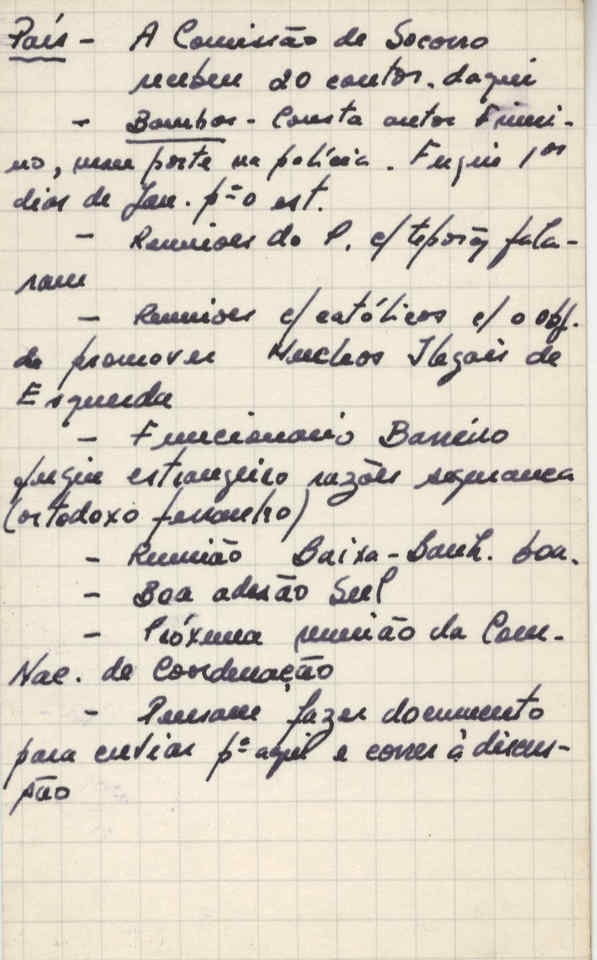 País - A Comissão de Socorro
recebeu 20 contos. daqui
- Bombas - Consta autor Firmi-
no, num porte na polícia. Fugiu 1os
dias de Jan. pª o est.
- Reuniões do P. c/ fala-
ram
- Reuniões c/ católicos c/ o obj.
de promover Nucleos Ilegais de
Esquerda
- Funcionario Barreiro
fugiu estrangeiro razões seguranca
(ortodoxo ferrenho)
- Reunião Baixa-Banh. boa.
- Boa adesão Sul
- Próxima reunião da Com-
Nac. de Coordenação
- Pensam fazer documento
para enviar pª aqui e correr à discus-
são